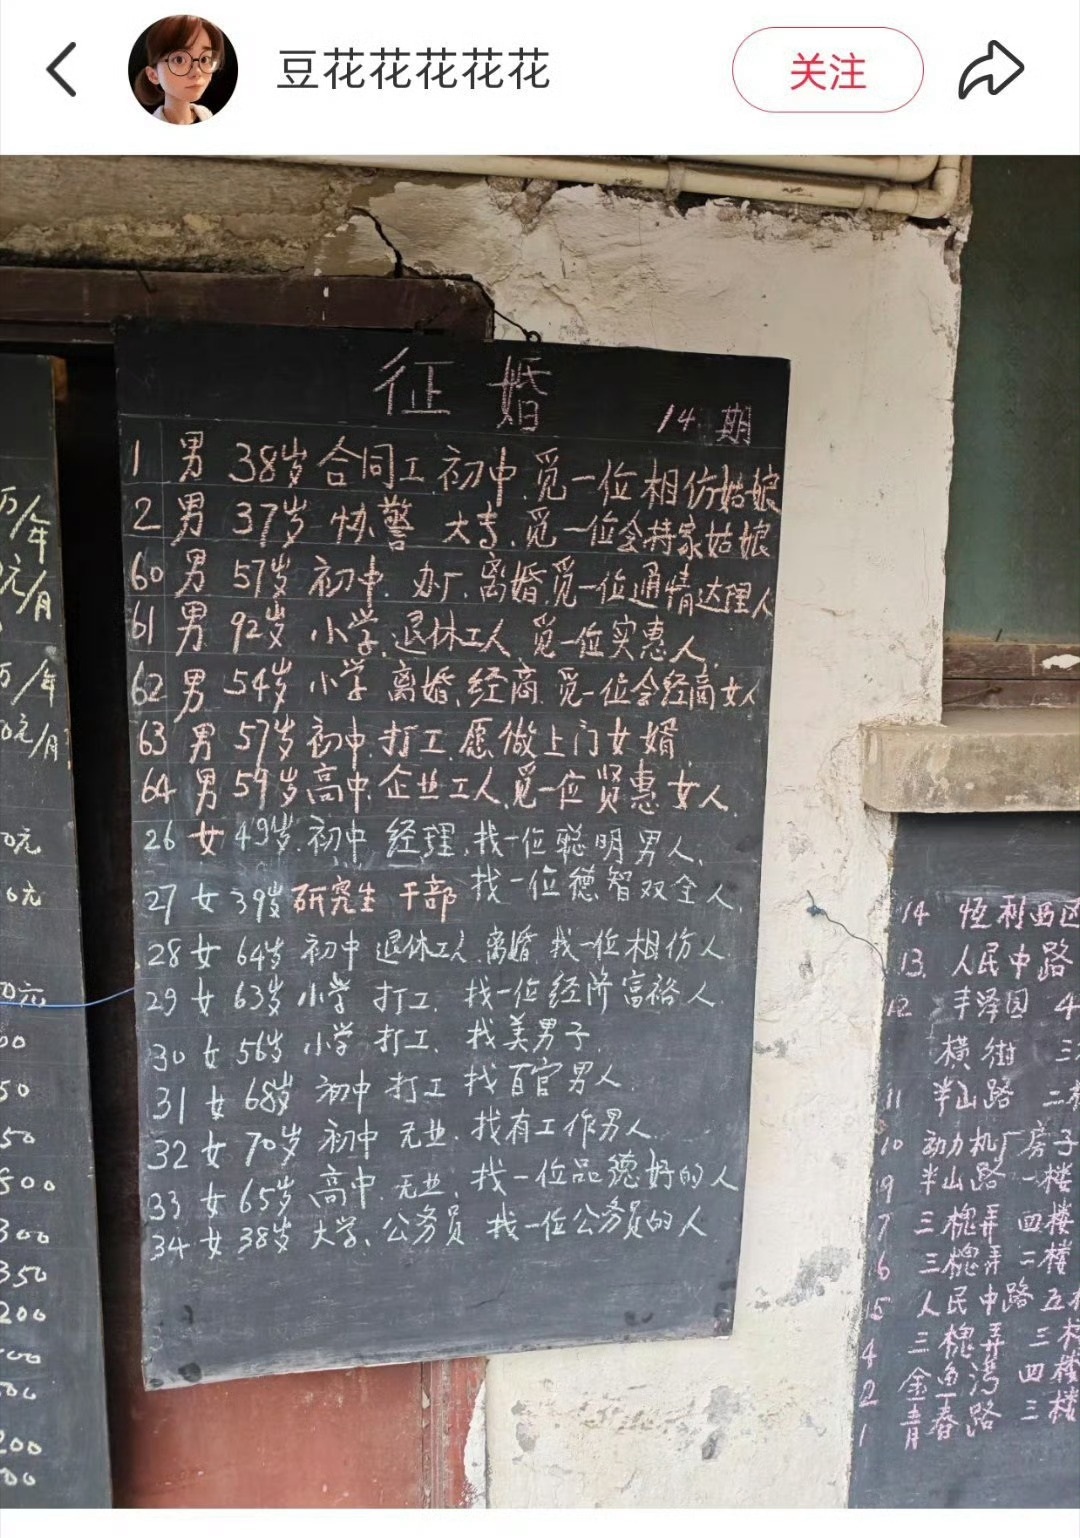 豆花花花花花
关注
征婚
14.期
1 男 38岁 合同工.初中.觅一位相仿姑娘
2 男 37岁 协警 大专.觅一位会持家姑娘
60 男 57岁 初中.办厂.离婚.觅一位通情达理人
61 男 92岁 小学.退休工人.觅一位实惠人.
62 男 54岁 小学 离婚.经商.觅一位会经商女人
63 男 57岁 初中.打工.愿做上门女婿
64 男 59岁 高中.企业工人.觅一位贤惠女人.
26 女 49岁.初中 经理.找一位聪明男人.
27 女 39岁 研究生 干部 找一位德智双全人.
28 女 64岁 初中 退休工人.离婚.找一位相仿人
29 女 63岁 小学 打工. 找一位经济富裕人
30 女 56岁 小学 打工. 找美男子
31 女 68岁 初中 打工 找百官男人.
32 女 70岁 初中 无业.找有工作男人.
33 女 65岁 高中.无业.找一位品德好的人
34 女 38岁 大学.公务员 找一位公务员的人
万/年
元/月
万/年
0元/月
0元
0元
0元
00
50
50
500
300
350
200
00
00
200
00
14 恒利西区
13. 人民中路
12 丰泽园 4
横街 三
11 半山路 二楼
10 动力机厂房子
9 半山路 一楼
7 三槐弄 四楼
6 三槐弄 二楼
5 人民中路 五
4 三槐弄 三
2 金鱼湾 四楼
1 青春路 三楼